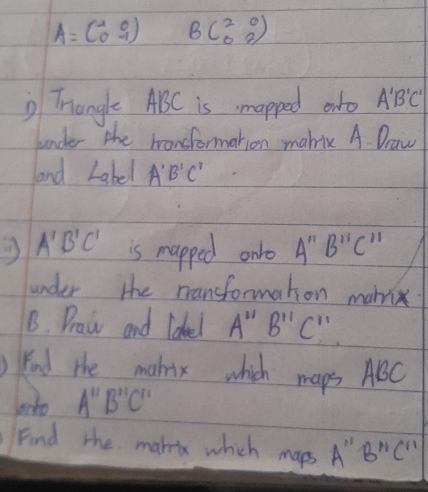 A = ( 0 0 -1) B (2 0 0 2)
i) Triangle ABC is mapped onto A'B'C'
under the transformation matrix A. Draw
and Label A'B'C'
ii) A'B'C' is mapped onto A" B" C"
under the transformation matrix
B. Draw and label A" B" C".
) Find the matrix which maps ABC
onto A" B" C"
Find the matrix which maps A" B" C"